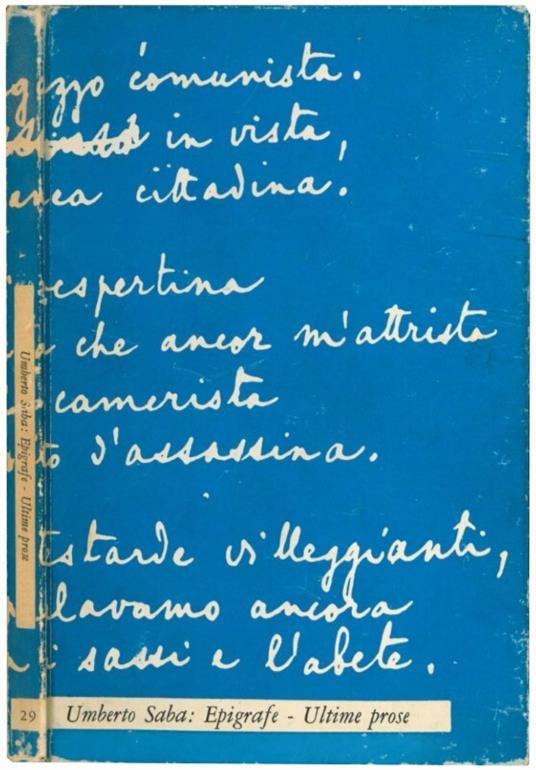 gozzo comunista.
in vista,
anca cittadina.
vespertina
che ancor m'attrista
camerista
to d'assassina.
testarde villeggianti,
lavamo ancora
i sassi e l'abete.
Umberto Saba: Epigrafe - Ultime prose
29
Umberto Saba: Epigrafe - Ultime prose